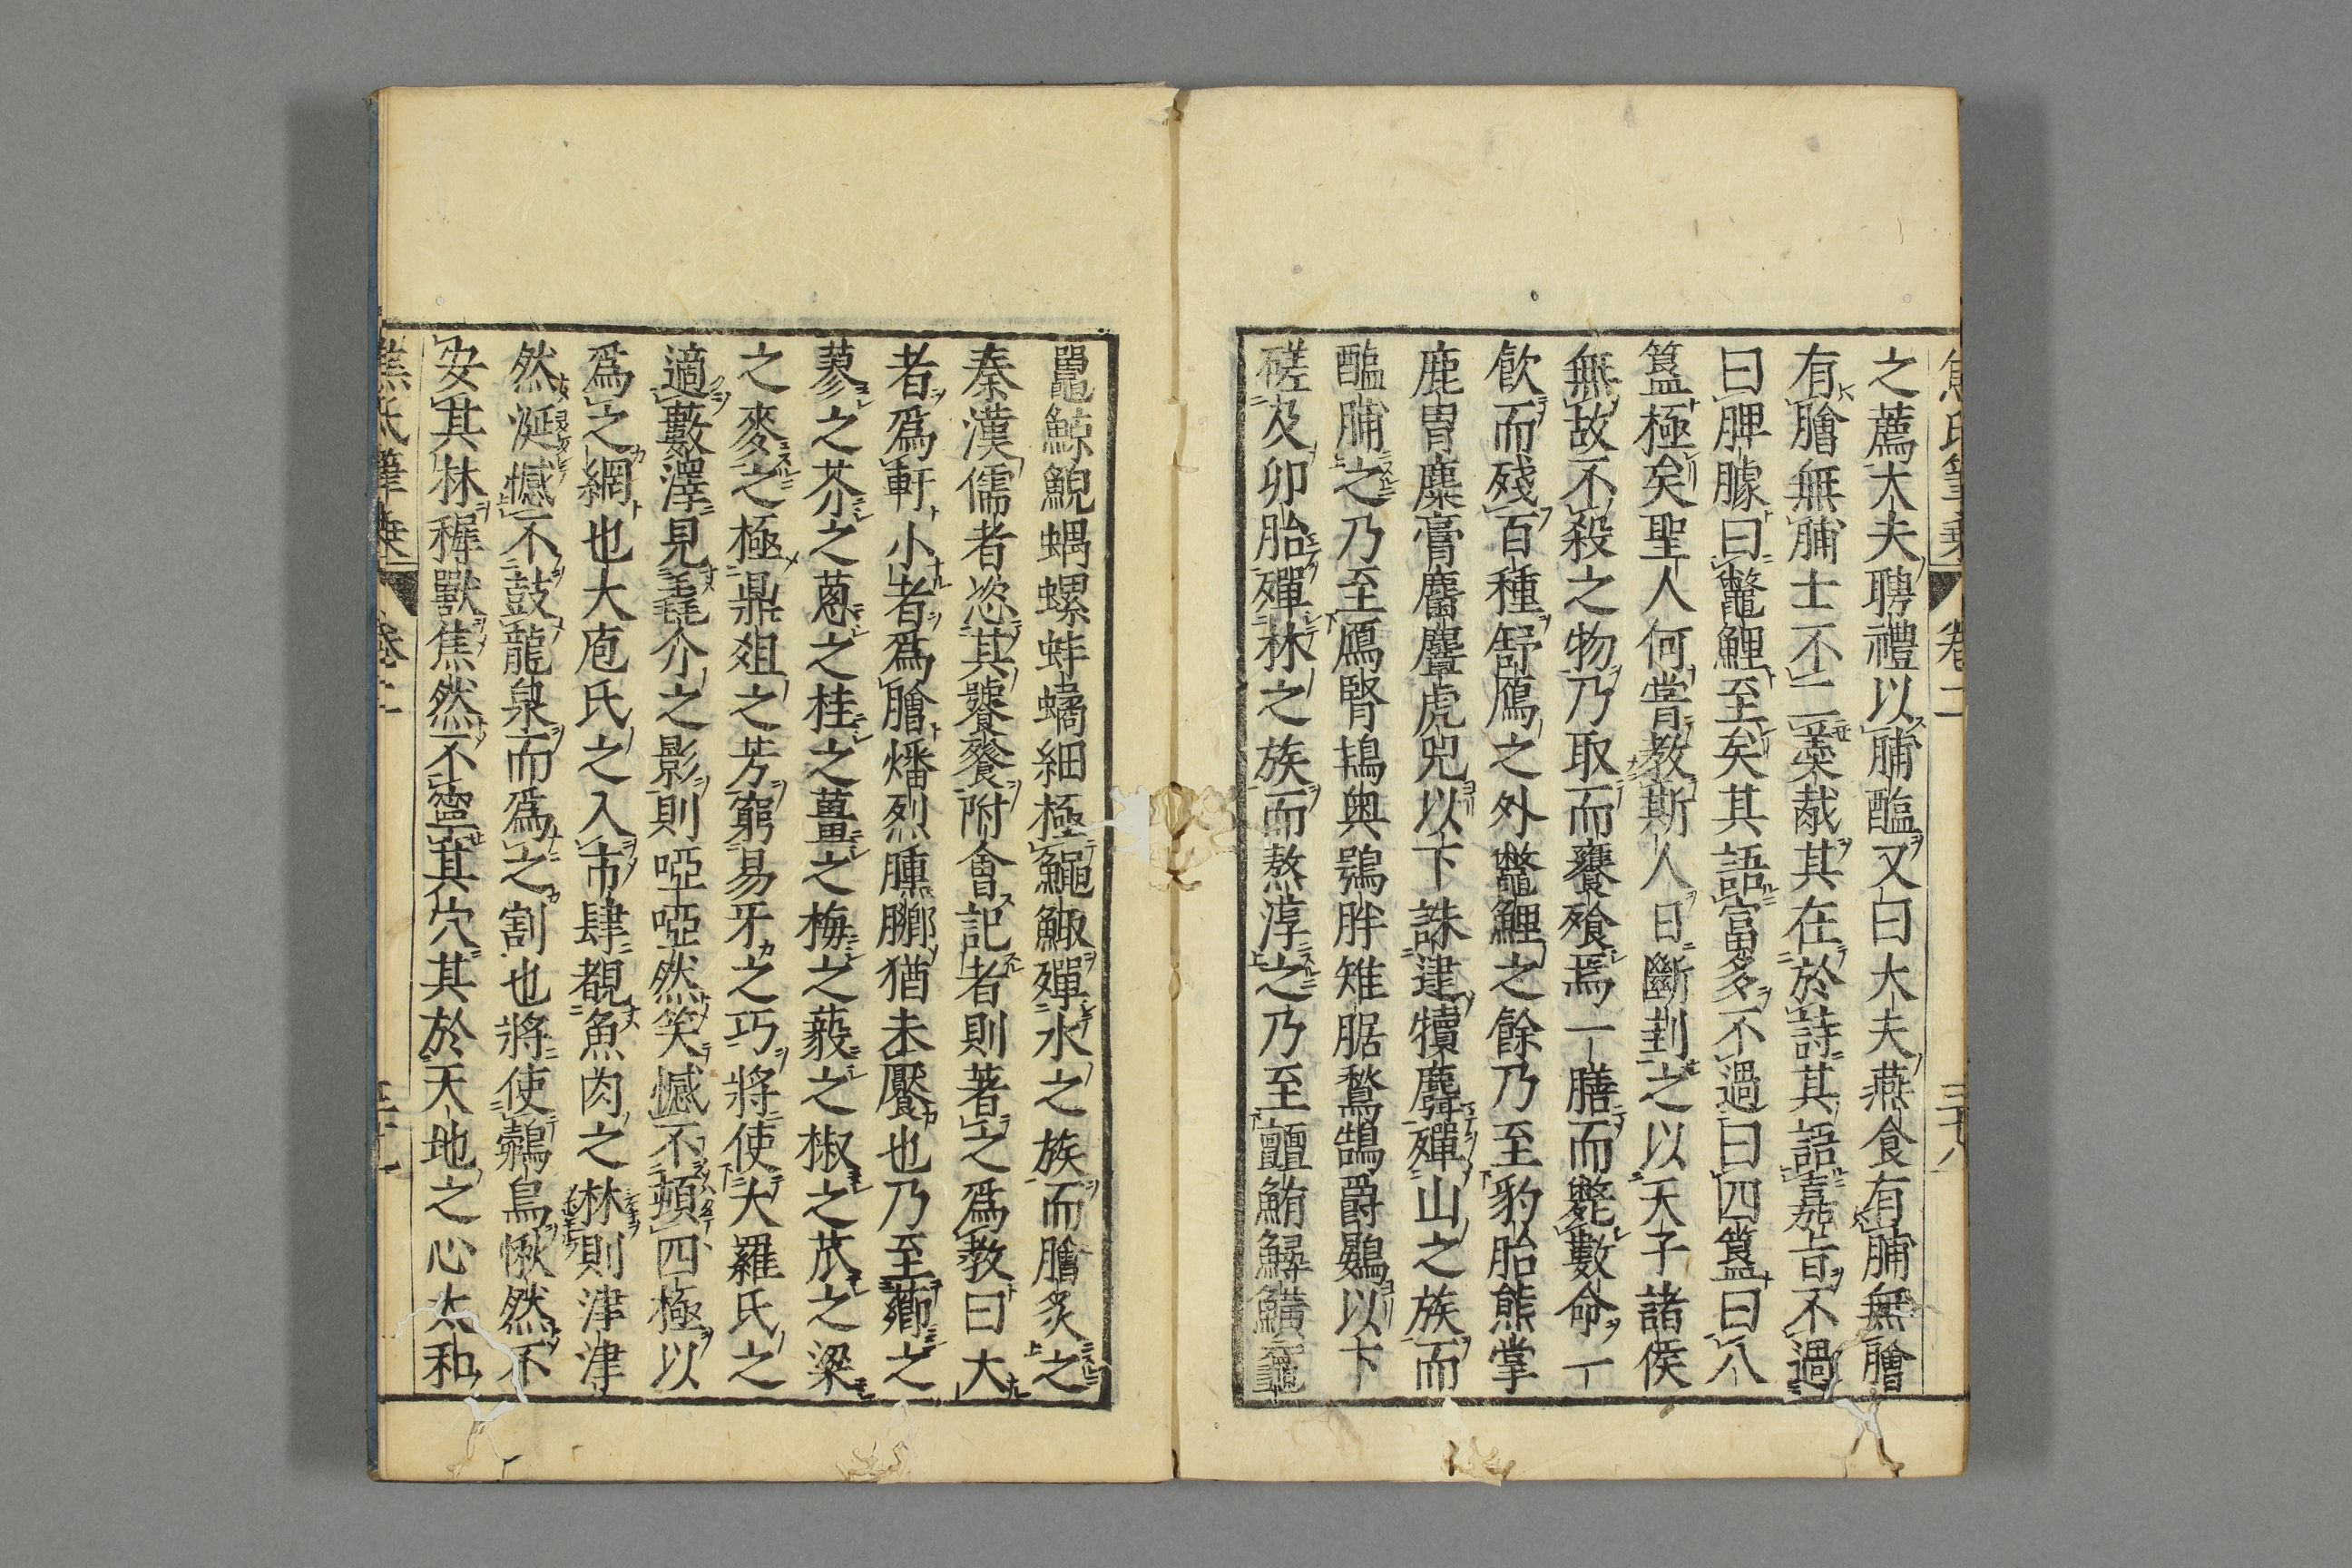 焦氏筆乗 卷二 三十八
之薦大夫聘禮以脯醢又曰大夫燕食有脯無膾
有膾無脯士不二羮胾其在於詩其語嘉旨不過
曰脾臄曰鼈鯉至矣其語富多不過曰四簋曰八
簋極矣聖人何嘗教斯人日斷刲之以天子諸侯
無故不殺之物乃取而饔飱焉一膳而斃數命一
飲而殘百種舒鴈之外鼈鯉之餘乃至豹胎熊掌
鹿胃麋膏麕麞虎兕以下誅逮犢麛殫山之族而
醢脯之乃至鴈腎鴇奥鴞胖雉腒鶖鵠爵鷃以下
磋及卵胎殫林之族而熬淳之乃至鱣鮪鱘鱑黿
鼉鯨鯢蜎螺蚌蟊細極鱦鯫殫水之族而膾炙之
秦漢儒者恣其饕餮附會記者則著之爲教曰大
者爲軒小者爲膾燔烈膗膷猶未饜也乃至薌之
蓼之芥之蔥之桂之薑之梅之藙之椒之茮之梁
之麥之極鼎爼之芳窮易牙之巧將使大羅氏之
適藪澤見毳介之影則啞啞然笑憾不頓四極以
爲之網也大庖氏之入市肆覩魚肉之林則津津
然涎憾不鼓龍泉而爲之割也將使鶉鳥愀然不
安其林穉獸焦然不寧其穴其於天地之心太和
焦氏筆乗 卷二